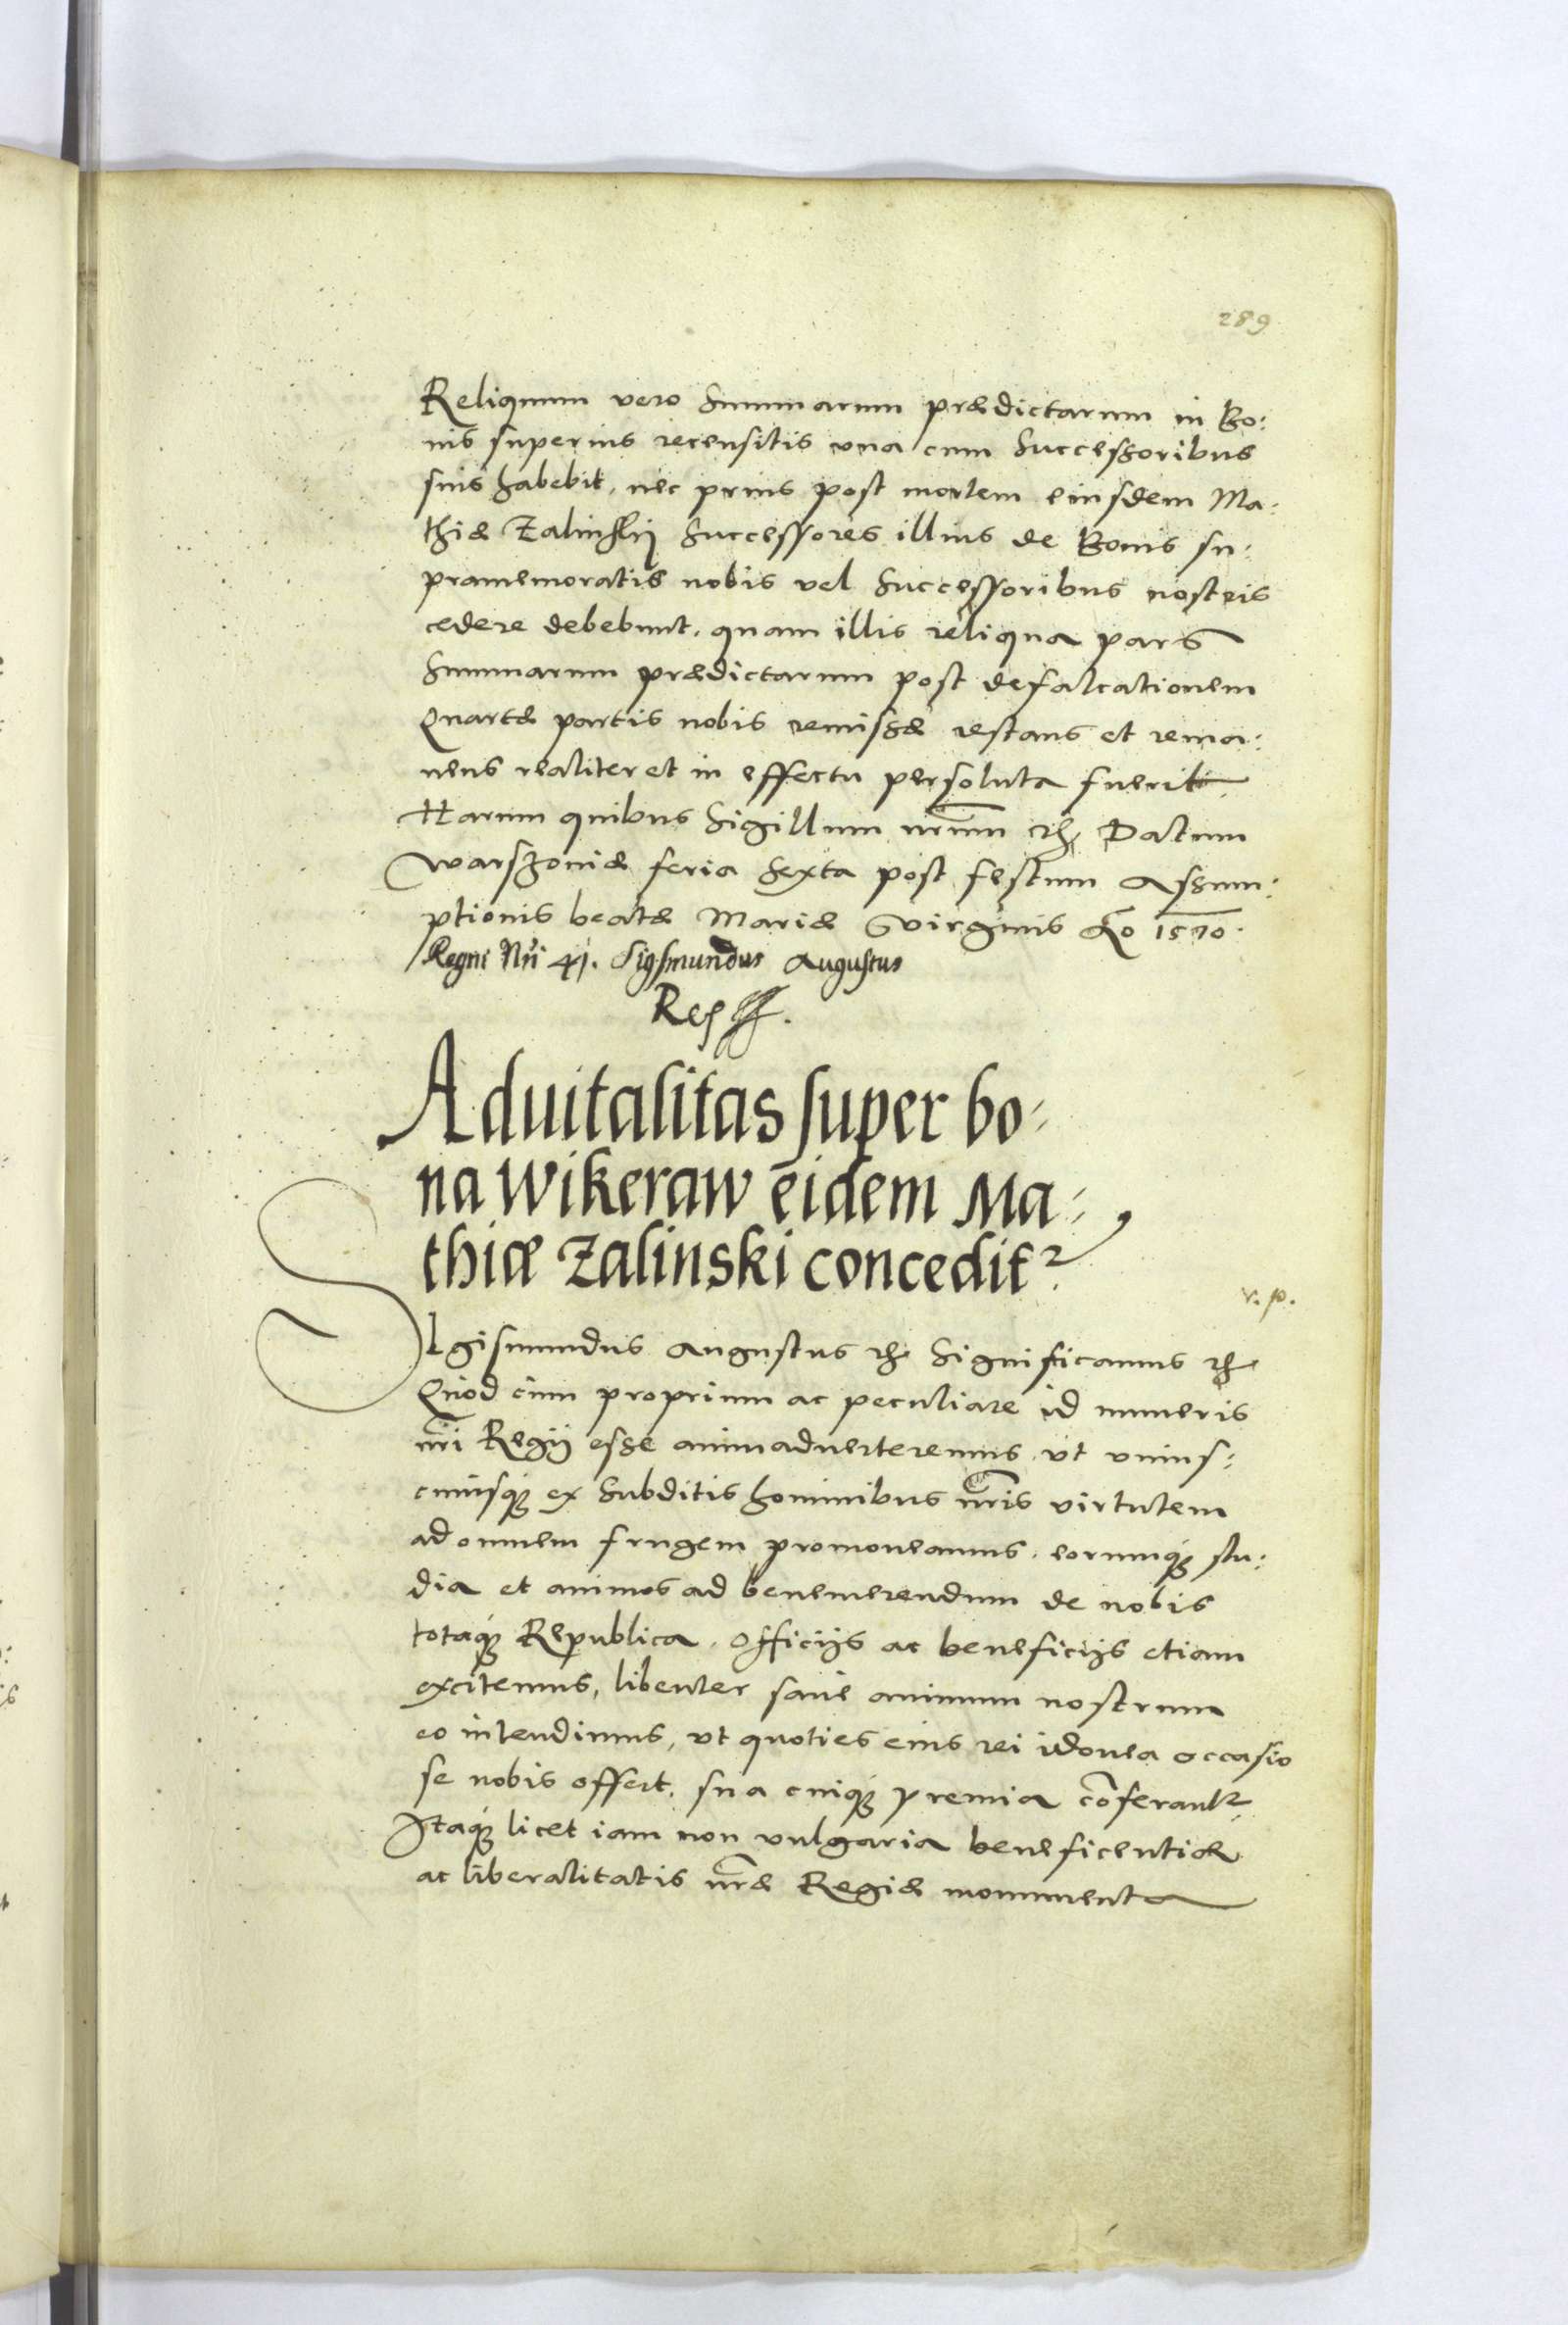 289
Reliquum vero Summarum prædictarum in Bo:
nis superius recensitis una cum Successoribus
suis habebit, nec prius post mortem eiusdem Ma:
thiæ Zalinskij Successores illius de Bonis su:
pramemoratis nobis vel Successoribus nostris
cedere debebunt, quam illis reliqua pars
Summarum prædictarum post defalcationem
Quartæ partis nobis remissæ restans et rema:
nens realiter et in effectu persoluta fuerit
Harum quibus Sigillum nrūm etc. Datum
Warszoviæ feria Sexta post festum Assum:
ptionis beatæ Mariæ Virginis Ao 1570.
Regni Nri 41. Sigismundus Augustus
Rex
Aduitalitas super bo-
na Wikeraw eidem Ma-
thiæ Zalinski conceditr
v. p.
SIgismundus Augustus etc. Significamus etc.
Quod cum proprium ac peculiare id muneris
nri Regij esse animadverteremus, ut unius:
cuiusq; ex Subditis hominibus nris virtutem
ad omnem frugem promoveamus, eorumq; stu:
dia et animos ad benemerendum de nobis
totaq; Republica, officijs ac beneficijs etiam
excitemus, libenter sane animum nostrum
eo intendimus, ut quoties eius rei idonea occasio
se nobis offert, sua cuiq; premia cōferantr
Itaq; licet iam non vulgaria beneficentiæ
ac liberalitatis nræ Regiæ monumenta